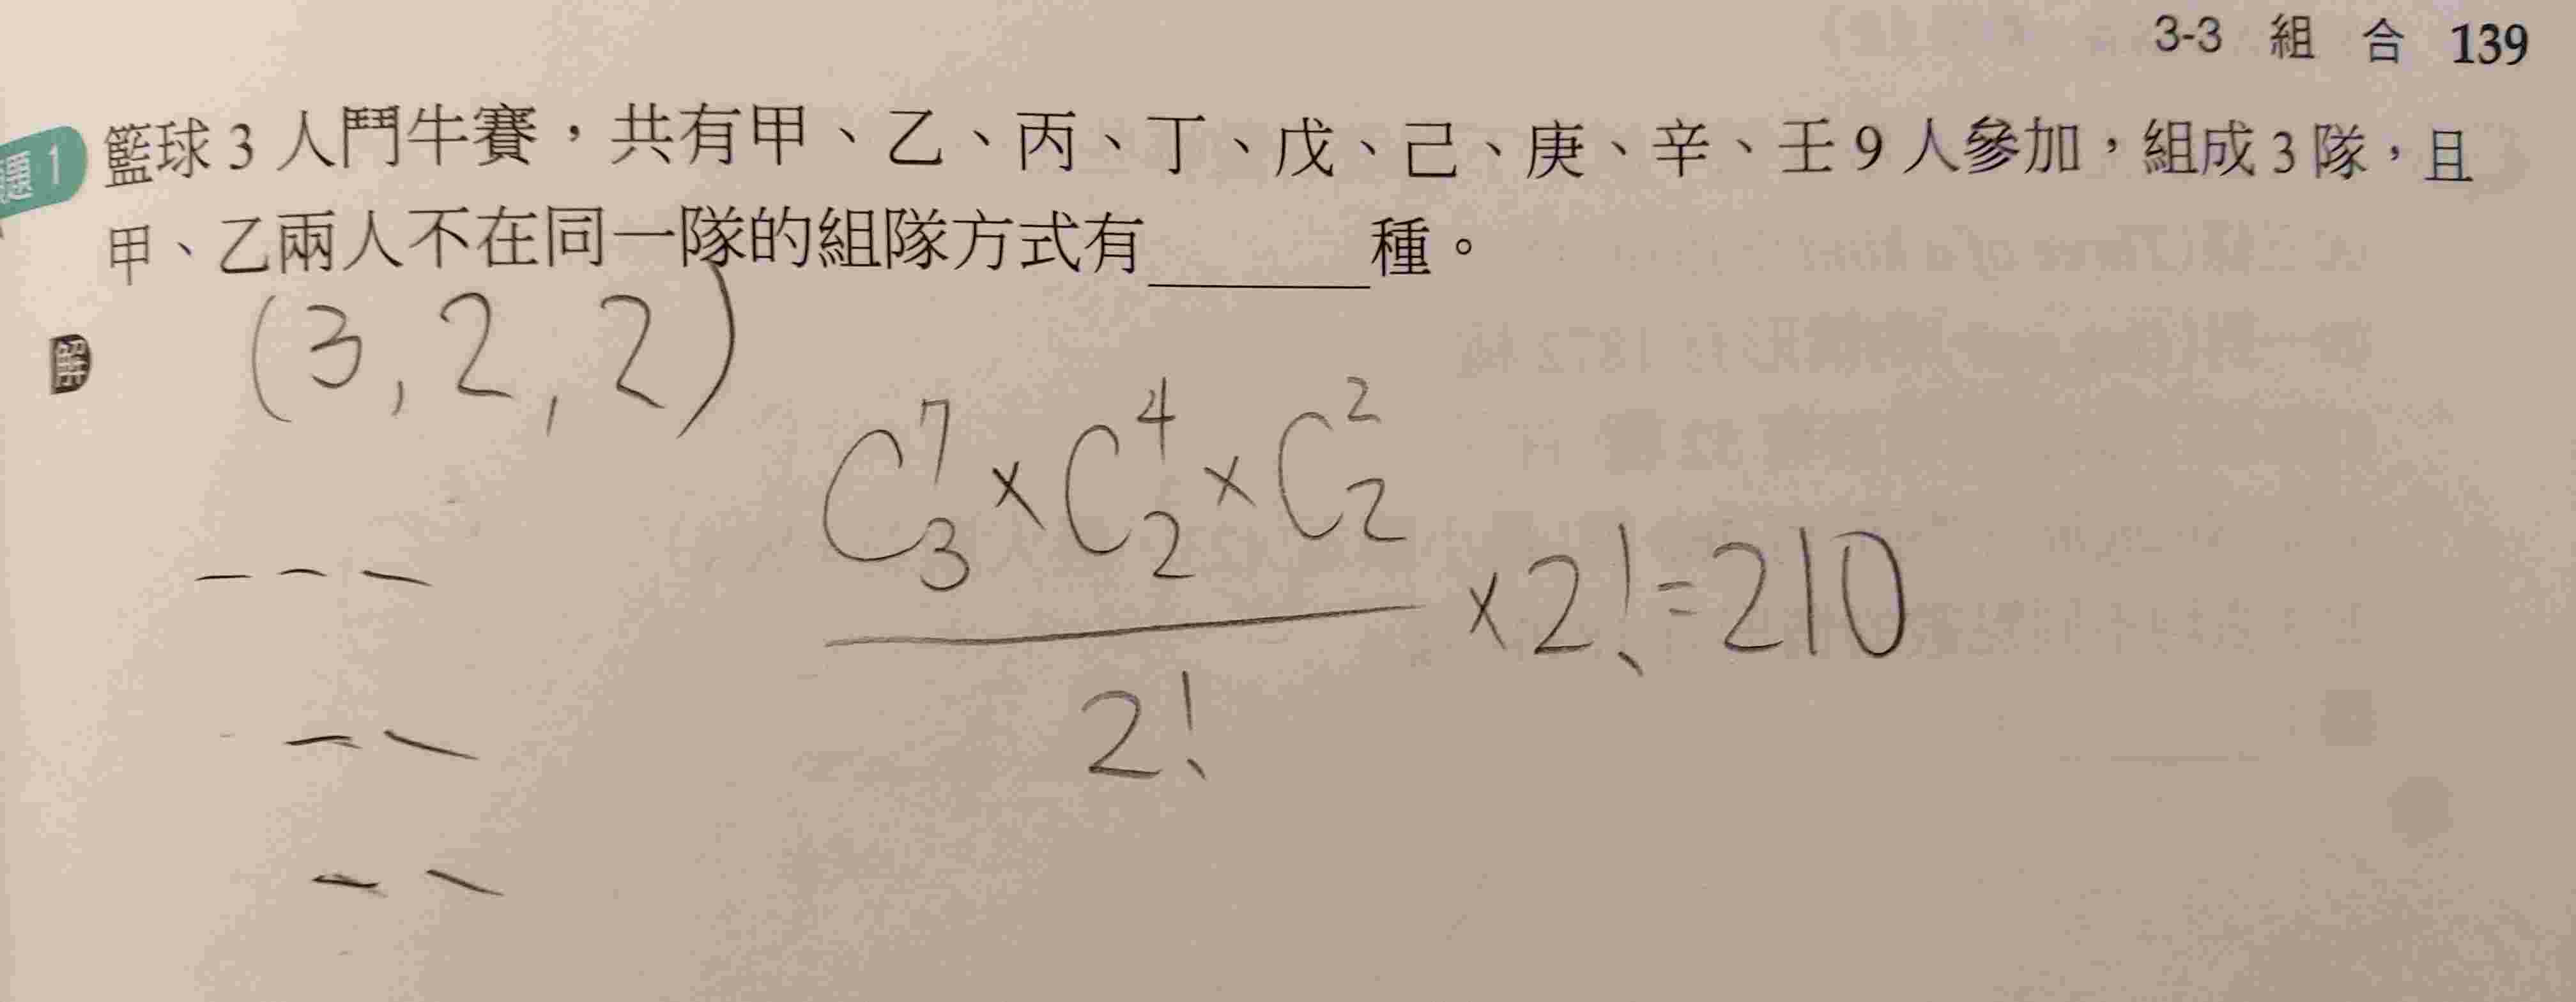 3-3 組 合 139
題1 籃球 3 人鬥牛賽，共有甲、乙、丙、丁、戊、己、庚、辛、壬 9 人參加，組成 3 隊，且
甲、乙兩人不在同一隊的組隊方式有______種。
解
(3, 2, 2)
C^7_3 × C^4_2 × C^2_2
× 2! = 210
2!